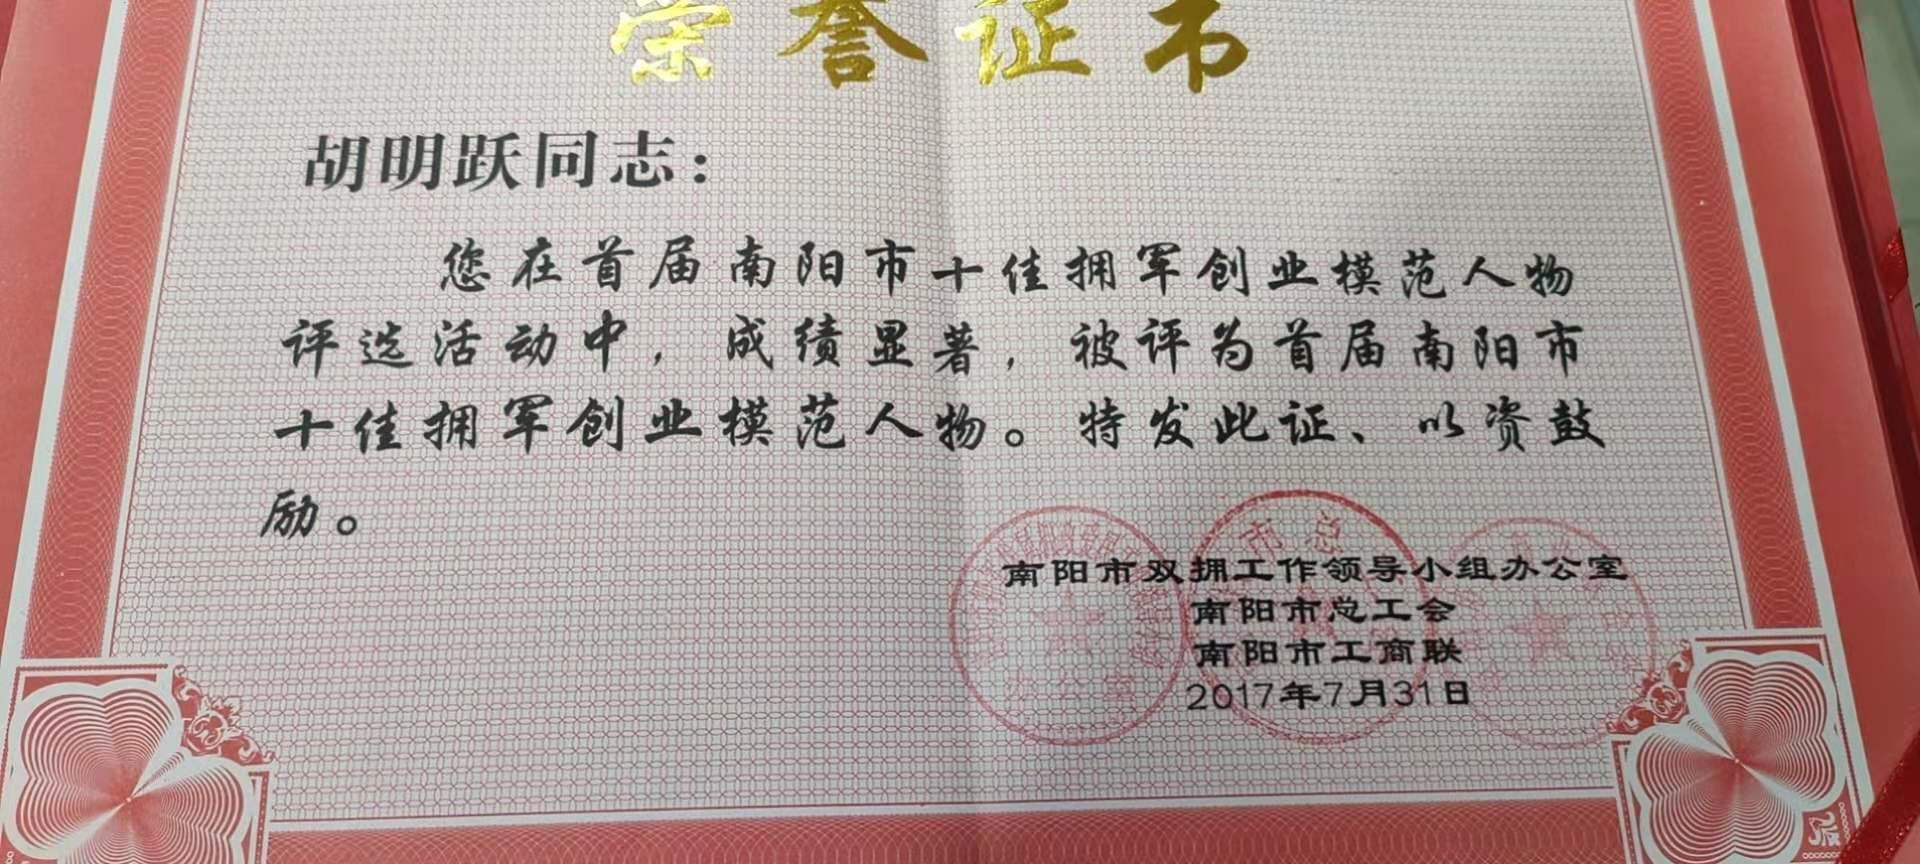 荣誉证书
胡明跃同志：
您在首届南阳市十佳拥军创业模范人物
评选活动中，成绩显著，被评为首届南阳市
十佳拥军创业模范人物。特发此证、以资鼓
励。
南阳市双拥工作领导小组办公室
南阳市总工会
南阳市工商联
2017年7月31日
市总
办公室